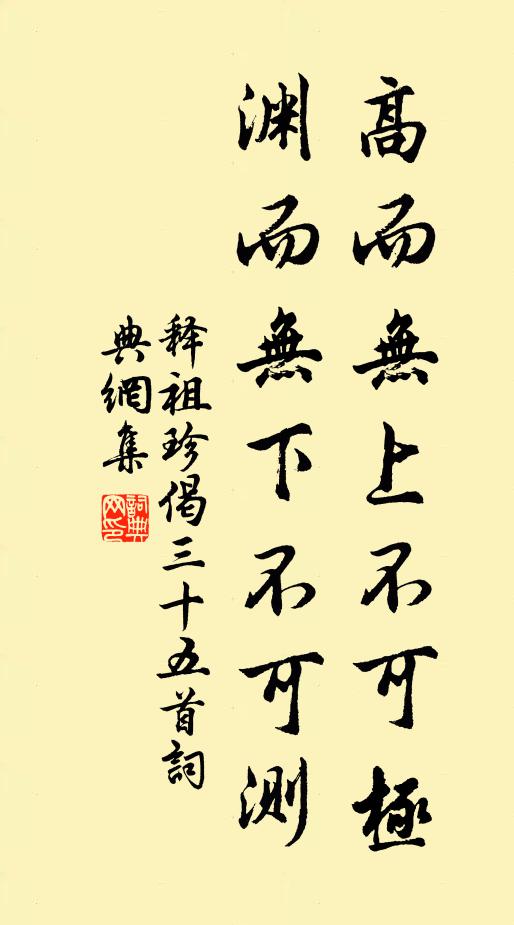 高而無上不可極
淵而無下不可測
釋祖珍偈三十五首詞
典網集
詞典網印